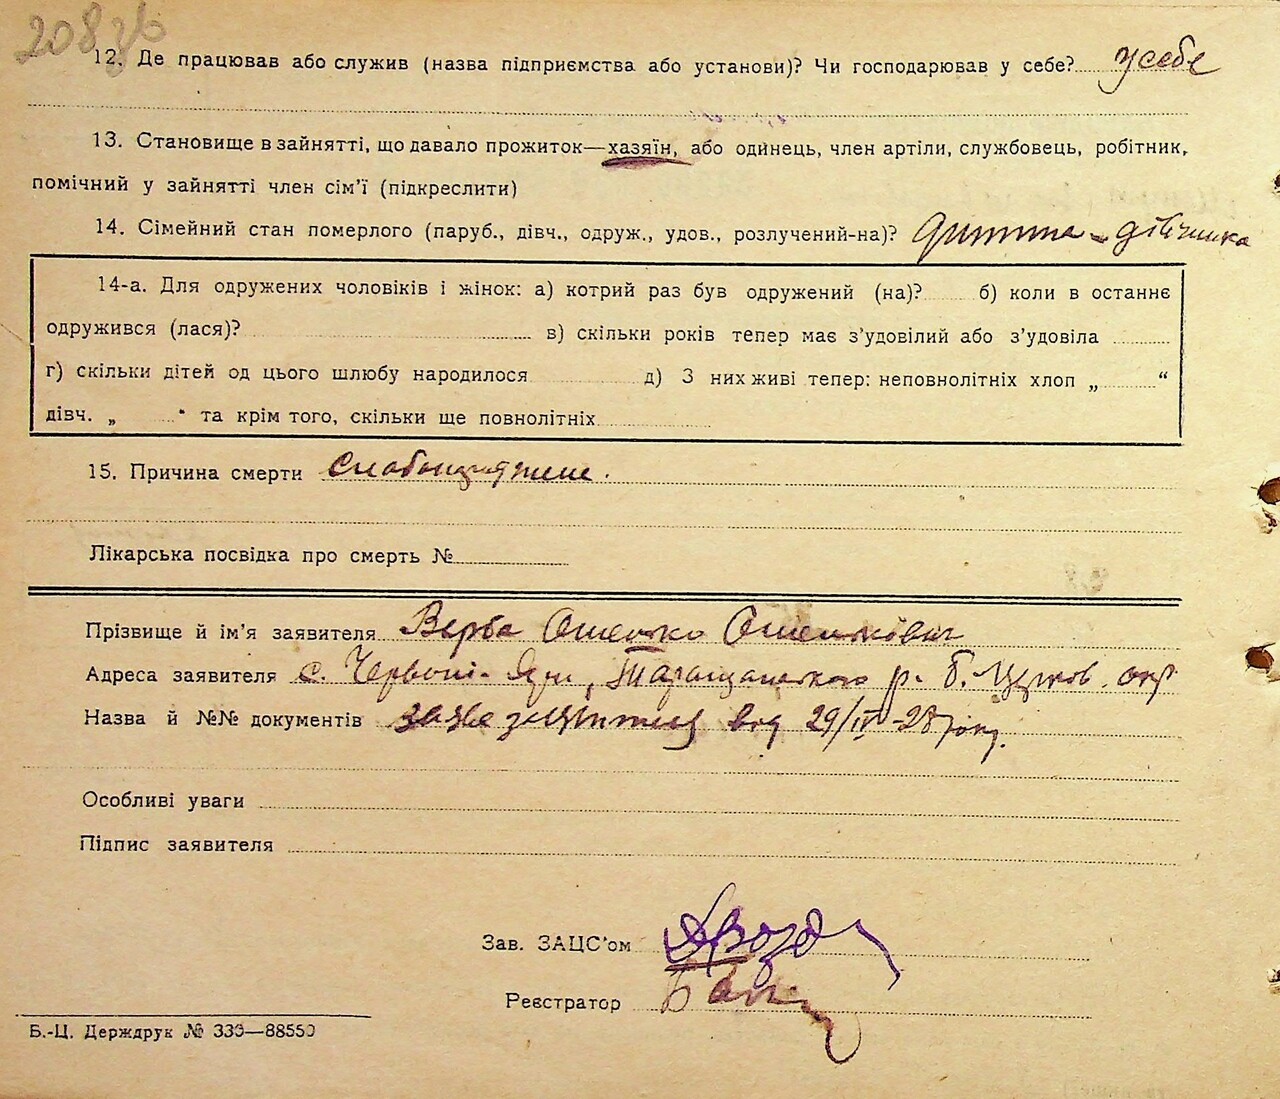 208 зв
12. Де працював або служив (назва підприємства або установи)? Чи господарював у себе? у себе
13. Становище в зайнятті, що давало прожиток—хазяїн, або одинець, член артіли, службовець, робітник,
помічний у зайнятті член сім'ї (підкреслити)
14. Сімейний стан померлого (паруб., дівч., одруж., удов., розлучений-на)? дитина - дівчинка
14-а. Для одружених чоловіків і жінок: а) котрий раз був одружений (на)? б) коли в останнє
одружився (лася)? в) скільки років тепер має з'удовілий або з'удовіла
г) скільки дітей од цього шлюбу народилося д) З них живі тепер: неповнолітніх хлоп „ “
дівч. „ “ та крім того, скільки ще повнолітніх
15. Причина смерти
Лікарська посвідка про смерть №
Прізвище й ім'я заявителя Верба
Адреса заявителя с. Червоні-Яри, Таращанського р. Б. Церков. окр
Назва й №№ документів від 29/IV-28 року.
Особливі уваги
Підпис заявителя
Зав. ЗАЦС'ом
Реєстратор
Б.-Ц. Держдрук № 333—88550